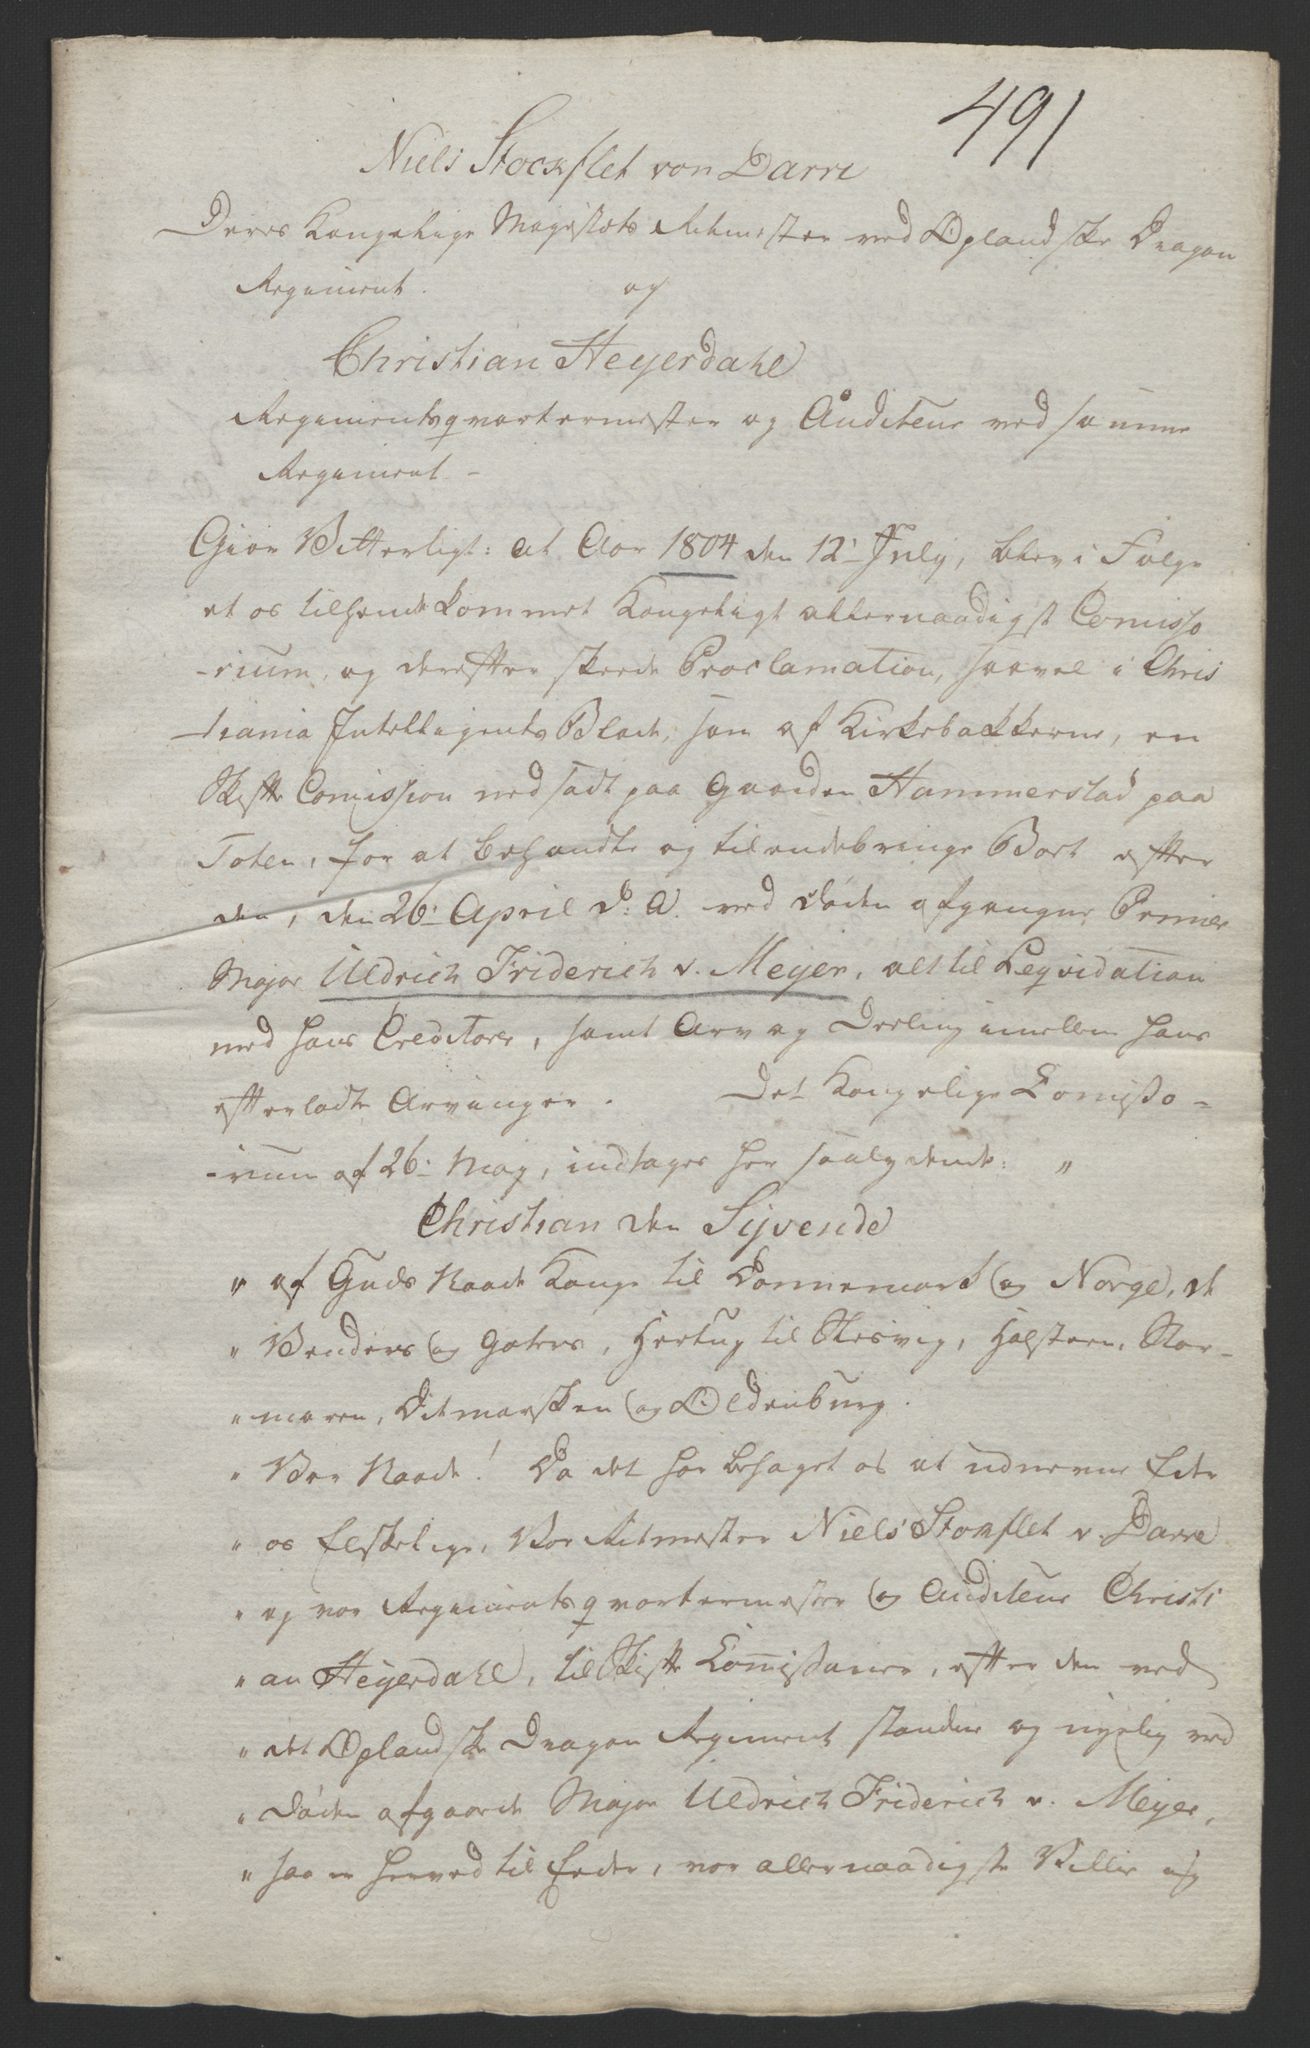 491
Niels Stockflet von Darre
Deres Kongelige Mayestæts Ritmester ved Oplandske Dragon
Regiment. og
Christian Heyerdahl
Regimentsqvartermester og Auditeur ved samme
Regiment -
Giør Vitterligt: at Aar 1804 den 12t July, blev i Følge
et os tilhændekommet Kongeligt allernaadigst Comisso
-rium, og derefter skeede Proclamation, saavel i Chris
-tiania Intelligents Blade, som af Kirkebakkerne, en
Skifte Comission nedsadt paa Gaarden Hammerstad paa
Toten, for at behandle og tilendebringe Boet efter
den, den 26t April d: A. ved Døden afgangne Premier
Major Uldrich Friderich v. Meyer, alt til Leqvidation
med hans Creditorer, samt Arv og Deeling imellem hans
efterladte Arvinger. Det Kongelige Comisso-
-rium af 26t May, indtages her saalydende: "
Christian den Syvende
" af Guds Naade Konge til Dannemark og Norge, de
" Venders og Goters, Hertug til Slesvig, Holsteen, Stor-
" maren, Ditmarsken og Oldenburg.
" Vor Naade! Da det har behaget os at udnevne Eder
" os Elskelige, Vor Ritmester Niels Stokflet v. Darre
" og vor Regimentsqvartermester og Auditeur Christi
" an Heyerdahl, til Skifte Commissairer, efter den ved
" det Oplandske Dragon Regiment staaende og nyelig ved
" Døden afgaaede Major Uldrich Friderich v. Meyer,
" saa er herved til Eder, vor allernaadigste Villie og